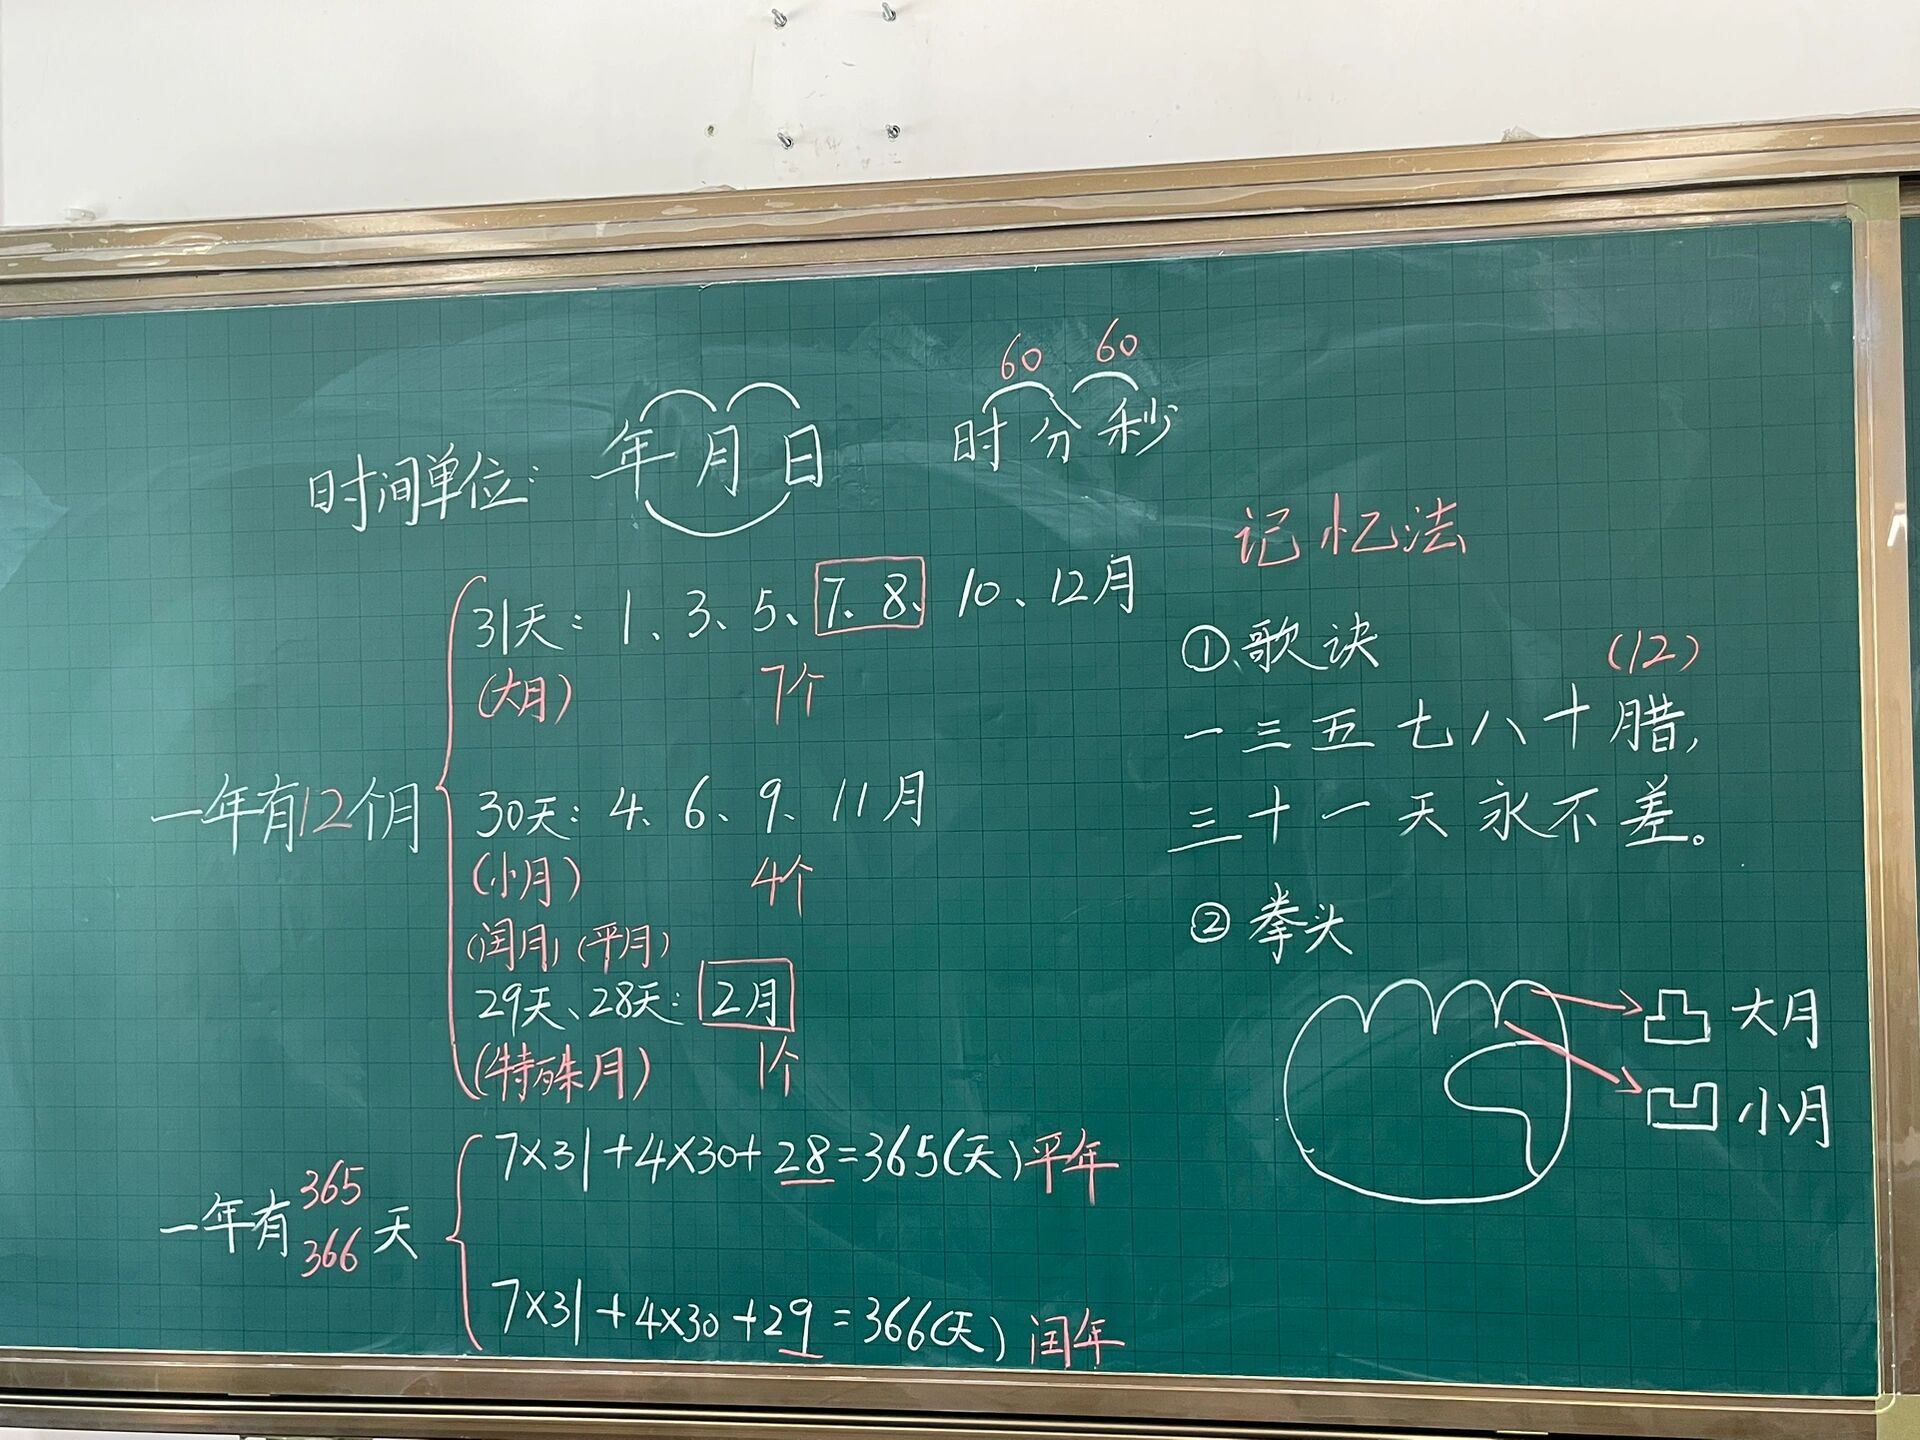 60 60
时间单位: 年月日 时分秒
31天: 1、3、5、7、8、10、12月
(大月) 7个
一年有12个月
30天: 4、6、9、11月
(小月) 4个
(闰月) (平月)
29天、28天: 2月
(特殊月) 1个
一年有365 366天
7×31+4×30+28=365(天) 平年
7×31+4×30+29=366(天) 闰年
记忆法
①、歌诀 (12)
一三五七八十腊,
三十一天永不差。
② 拳头
凸 大月
凹 小月